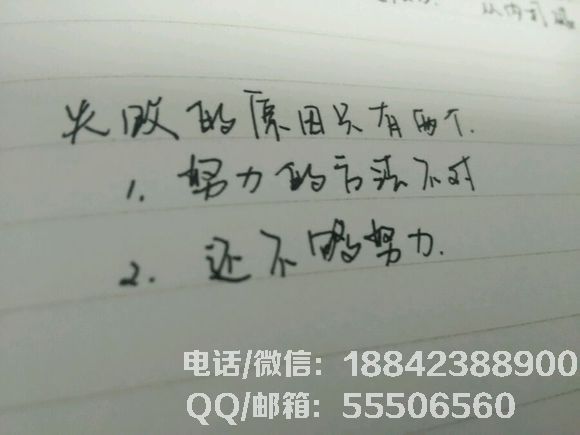 从内到
失败的原因只有两个.
1. 努力的方法不对
2. 还不够努力.
电话/微信：18842388900
QQ/邮箱：55506560